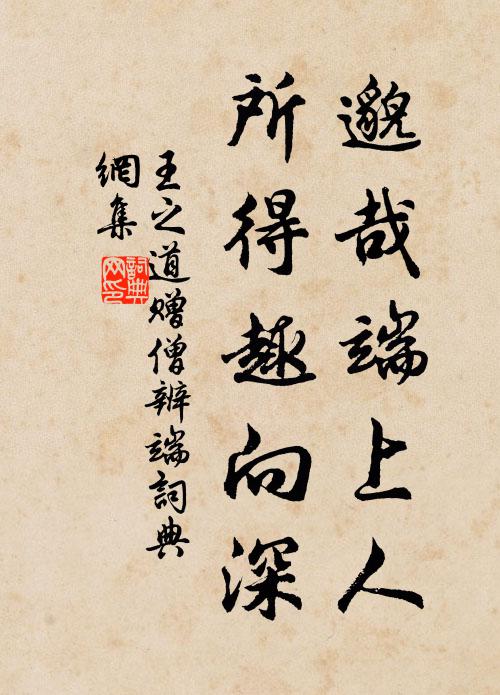 邈哉端上人
所得趣向深
王之道赠僧辨端詞典
網集
詞典
网印